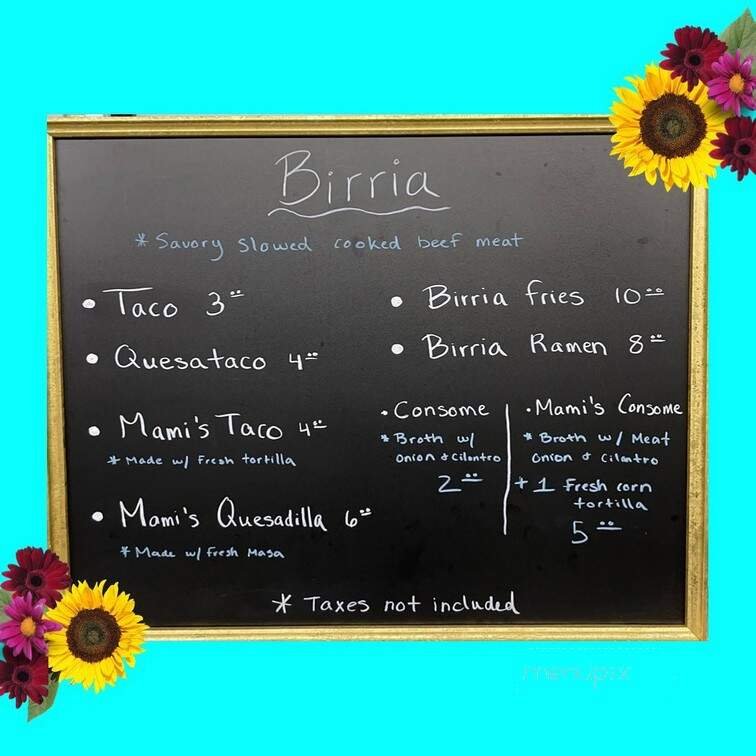 Birria
* Savory slowed cooked beef meat
• Taco 3.00
• Quesataco 4.00
• Mami's Taco 4.00
* Made w/ Fresh tortilla
• Mami's Quesadilla 6.00
* Made w/ Fresh Masa
• Birria fries 10.00
• Birria Ramen 8.00
• Consome
* Broth w/
onion & cilantro
2.00
• Mami's Consome
* Broth w/ Meat
onion & cilantro
+ 1 Fresh corn
tortilla
5.00
* Taxes not included
menupix